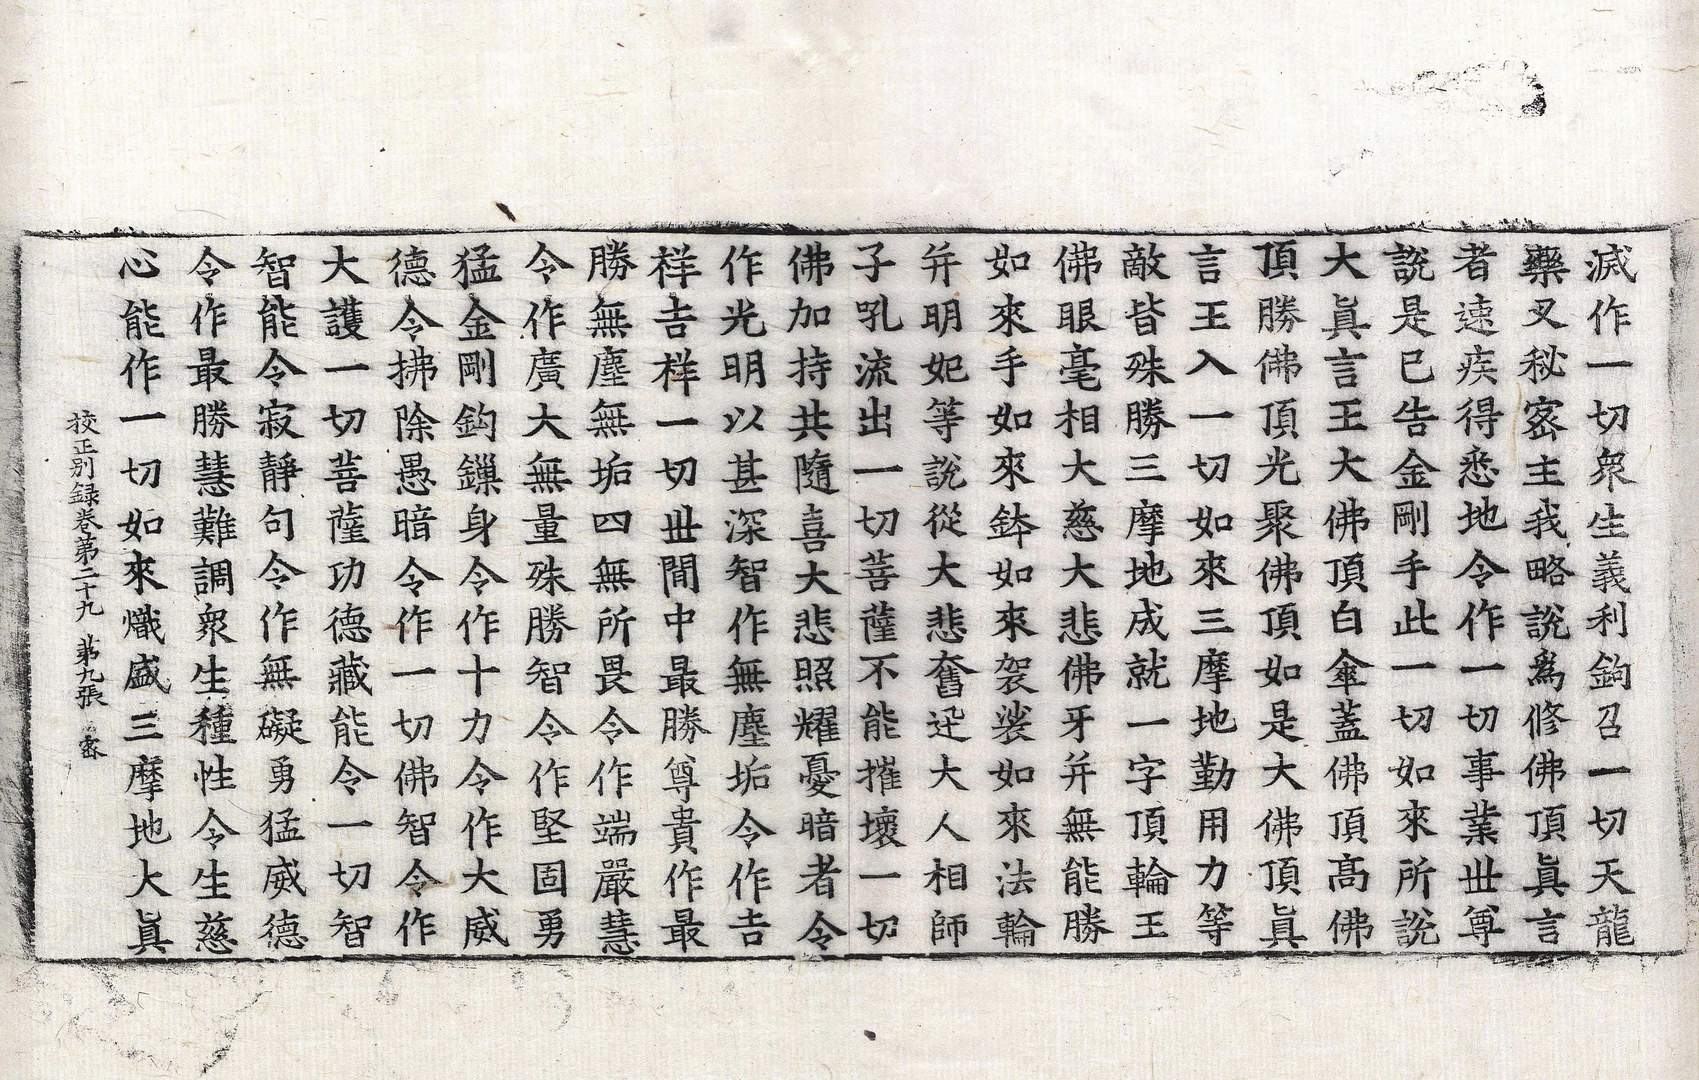 滅作一切衆生義利鉤召一切天龍
藥叉秘密主我略說爲修佛頂眞言
者速疾得悉地令作一切事業丗尊
說是已告金剛手此一切如來所說
大眞言王大佛頂白傘蓋佛頂高佛
頂勝佛頂光聚佛頂如是大佛頂眞
言王入一切如來三摩地勤用力等
敵皆殊勝三摩地成就一字頂輪王
佛眼毫相大慈大悲佛牙幷無能勝
如來手如來鉢如來袈裟如來法輪
幷明妃等說從大悲奮迅大人相師
子吼流出一切菩薩不能摧壞一切
佛加持共隨喜大悲照耀憂暗者令
作光明以甚深智作無塵垢令作吉
祥吉祥一切丗間中最勝尊貴作最
勝無塵無垢四無所畏令作端嚴慧
令作廣大無量殊勝智令作堅固勇
猛金剛鈎鏁身令作十力令作大威
德令拂除愚暗令作一切佛智令作
大護一切菩薩功德藏能令一切智
智能令寂靜句令作無礙勇猛威德
令作最勝慧難調衆生種性令生慈
心能作一切如來熾盛三摩地大眞
校正別録卷第二十九 第九張 密